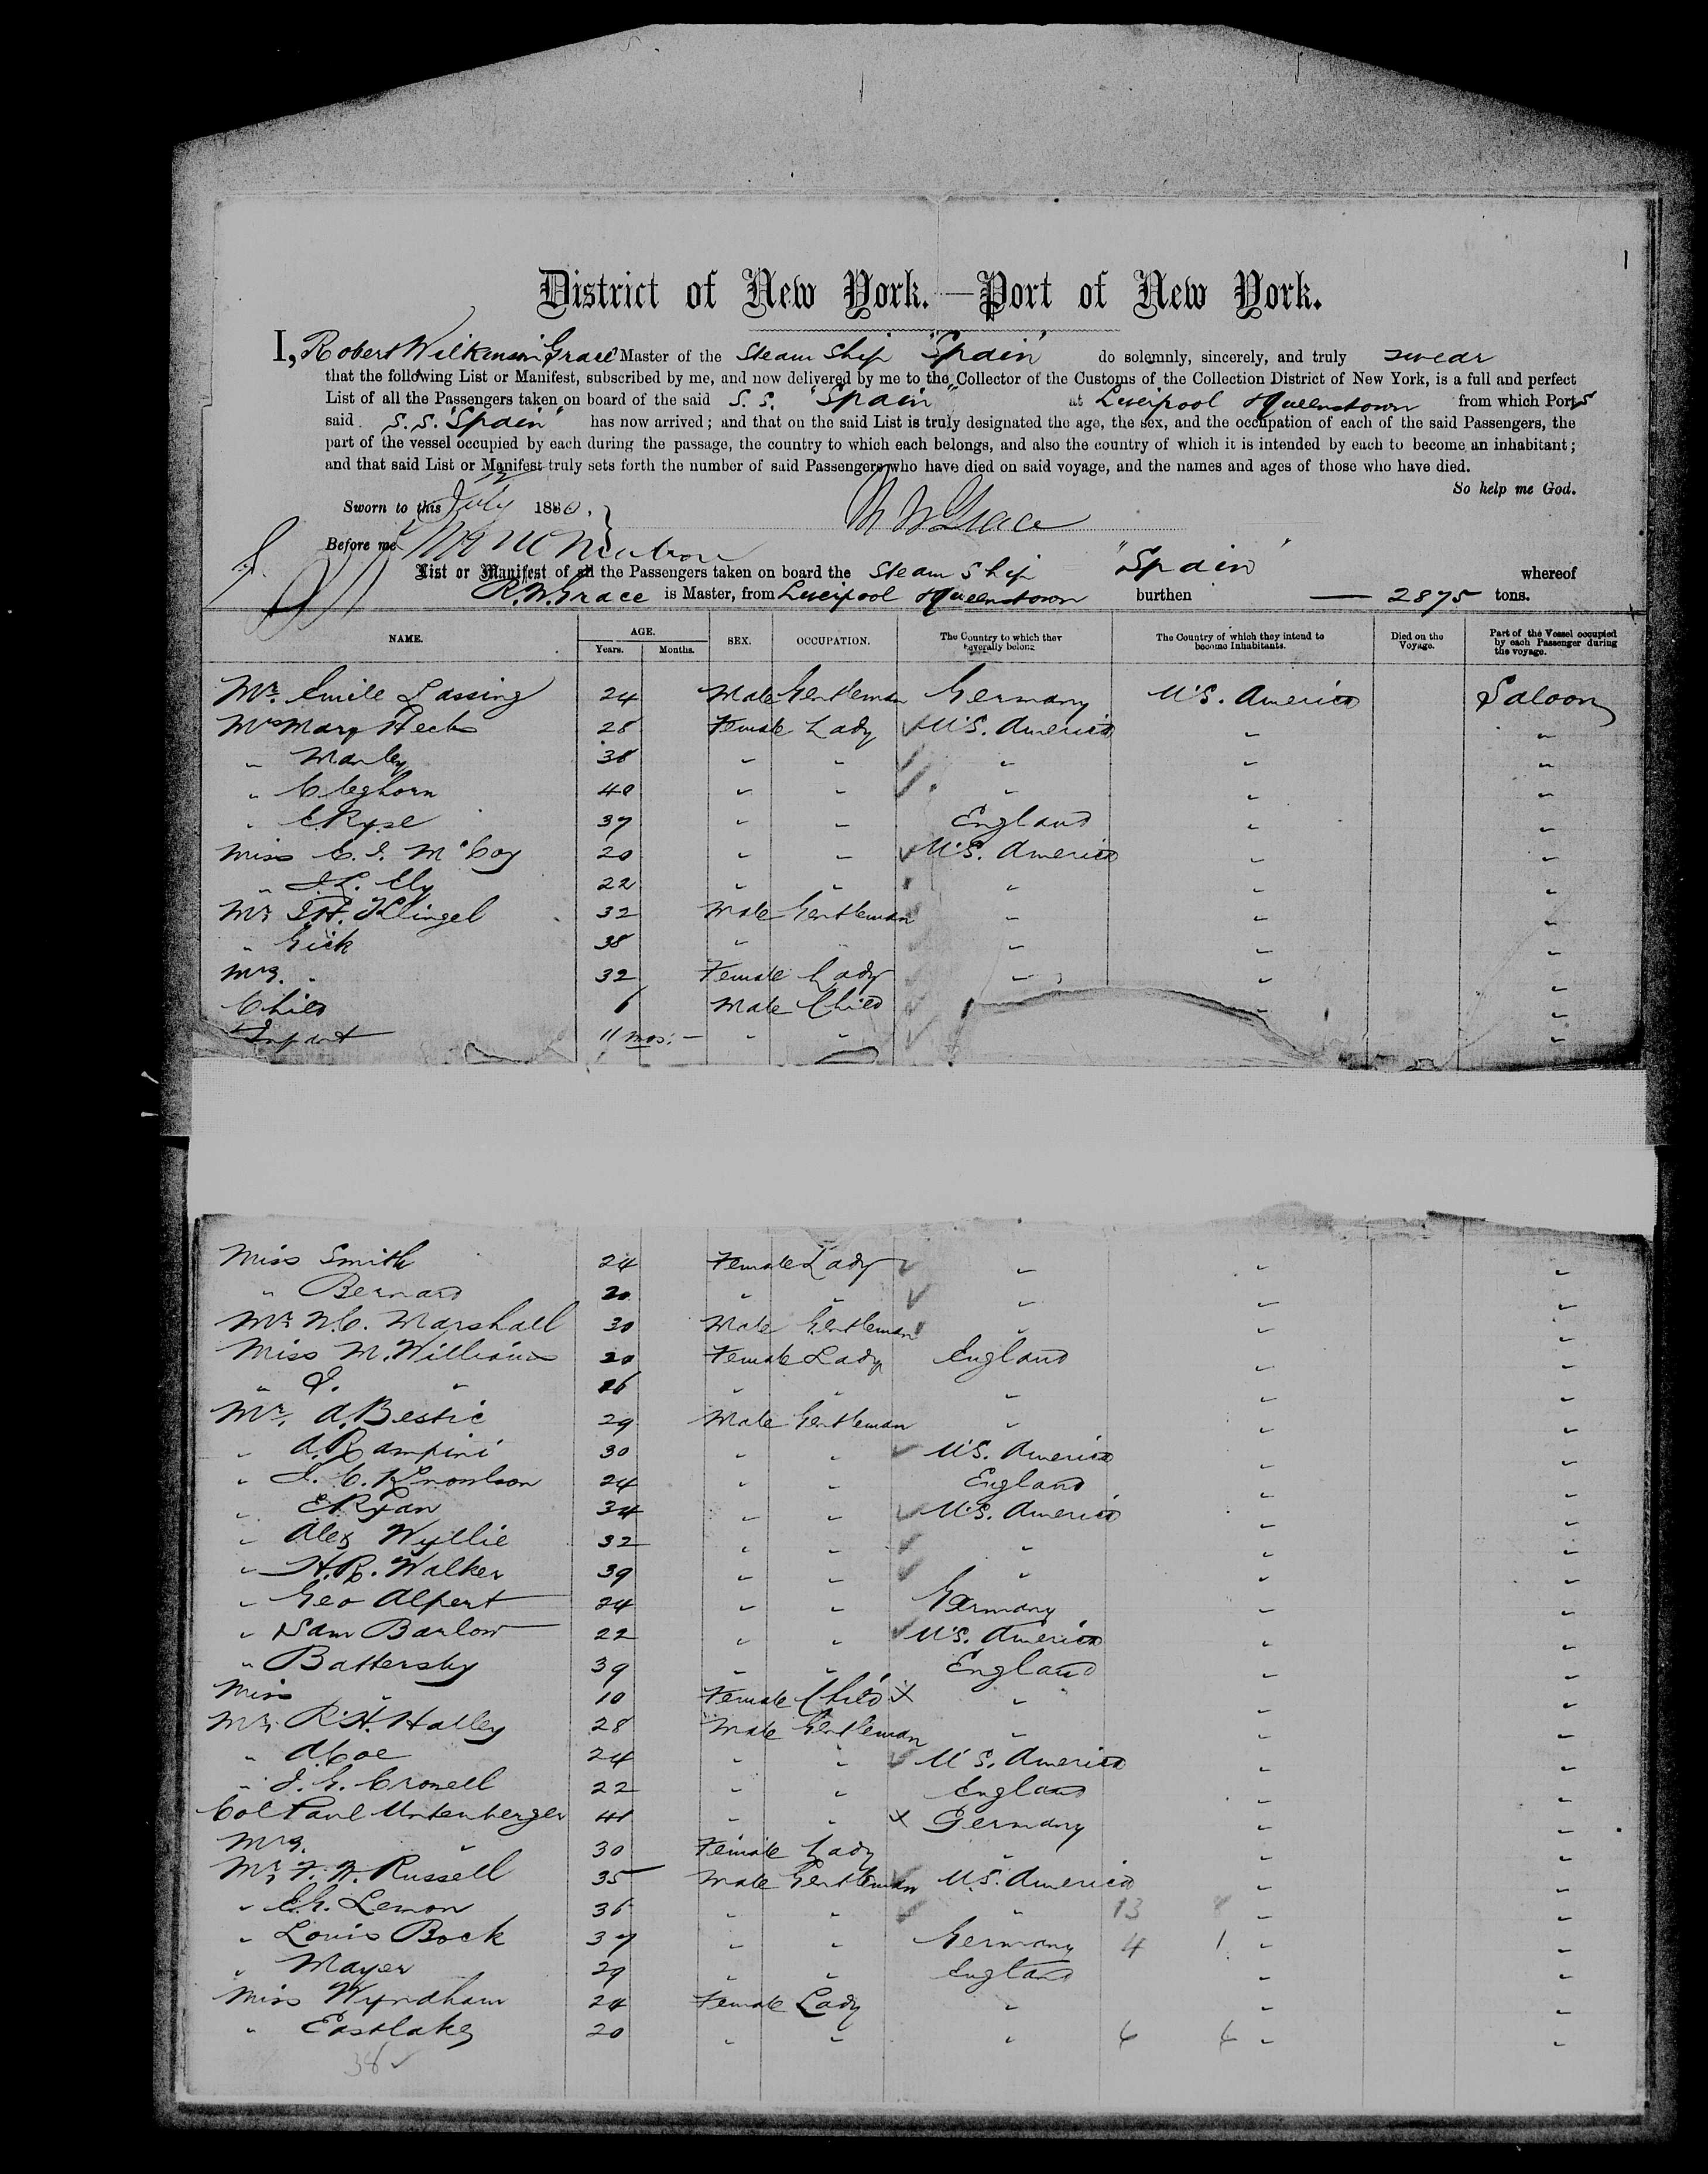 1
District of New York.—Port of New York.
I, Robert Wilkinson Grace Master of the Steam Ship "Spain" do solemnly, sincerely, and truly swear
that the following List or Manifest, subscribed by me, and now delivered by me to the Collector of the Customs of the Collection District of New York, is a full and perfect
List of all the Passengers taken on board of the said S. S. "Spain" at Liverpool & Queenstown from which Ports
said S. S. "Spain" has now arrived; and that on the said List is truly designated the age, the sex, and the occupation of each of the said Passengers, the
part of the vessel occupied by each during the passage, the country to which each belongs, and also the country of which it is intended by each to become an inhabitant;
and that said List or Manifest truly sets forth the number of said Passengers who have died on said voyage, and the names and ages of those who have died.
So help me God.
Sworn to this July 1880. R W Grace
Before me
List or Manifest of all the Passengers taken on board the Steam Ship "Spain" whereof
R. W. Grace is Master, from Liverpool & Queenstown burthen — 2875 tons.
NAME. AGE. Years. Months. SEX. OCCUPATION. The Country to which they severally belong The Country of which they intend to become Inhabitants. Died on the Voyage. Part of the Vessel occupied by each Passenger during the voyage.
Mr. Emile Lassing 24 Male Gentleman Germany U.S. America Saloon
Mrs Mary Heck 28 Female Lady U.S. America " "
" Manley 38 " " " " "
" Cleghorn 40 " " " " "
" E Ryse 37 " " England " "
Miss C. I. McCoy 20 " " U.S. America " "
" I. L. Ely 22 " " " " "
Mr I. H. Klingel 32 Male Gentleman " " "
" Gick 38 " " " " "
Mrs. " 32 Female Lady " " "
Child 6 Male Child " "
Infant 11 mos: — " " "
Miss Smith 24 Female Lady " " "
" Bernard 20 " " " " "
Mr W. C. Marshall 30 Male Gentleman " " "
Miss M. Williams 20 Female Lady England " "
" J. " 26 " " " " "
Mr. A. Bestic 29 Male Gentleman " " "
" A. Rampini 30 " " U.S. America " "
" J. C. Knowlson 24 " " England " "
" E Ryan 34 " " U.S. America " "
" Alex Wyllie 32 " " " " "
" H. R. Walker 39 " " " " "
" Geo Alpert 24 " " Germany " "
" Sam Barlow 22 " " U.S. America " "
" Battersby 39 " " England " "
Miss " 10 Female Child x " " "
Mr. R. H. Halley 28 Male Gentleman " " "
" A Coe 24 " " U.S. America " "
" J. G. Crowell 22 " " England " "
Col Paul Untenberger 41 " " x Germany " "
Mrs. " 30 Female Lady " " "
Mr F. W. Russell 35 Male Gentleman U.S. America " "
" C. G. Lemon 36 " " " 13 " "
" Louis Bock 37 " " Germany 4 1 " "
" Mayer 29 " " England " "
Miss Wyndham 24 Female Lady " " "
" Eastlake 20 " " " 6 6 " "
38 ✓